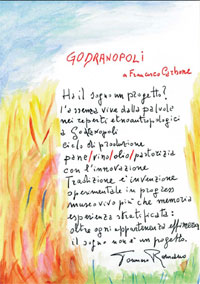 GODRANOPOLI
a Francesco Carbone
Ha il sogno un progetto?
l'assenza vive dalla parole
nei reperti etnoantropologici
a Godranopoli
ciclo di produzione
pane/vino/olio/pastorizia
con l'innovazione
Tradizione e invenzione
sperimentale in progress
museo vivo più che memoria
esperienza stratificata:
oltre ogni appartenenza effimera
il sogno non è un progetto.
Tommaso Romano